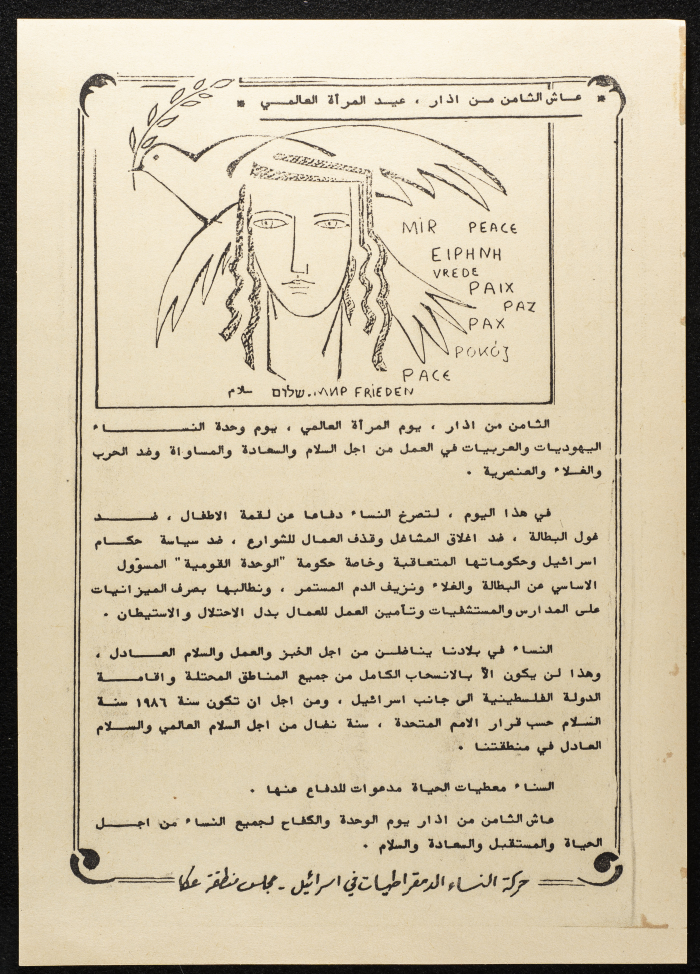 * عاش الثامن من اذار ، عيد المرأة العالمي *
MIR PEACE
EIPHNH
VREDE
PAIX
PAZ
PAX
POKÓJ
PACE
سلام שלום. МИР FRIEDEN
الثامن من اذار ، يوم المرأة العالمي ، يوم وحدة النساء
اليهوديات والعربيات في العمل من اجل السلام والسعادة والمساواة وضد الحرب
والغلاء والعنصرية .
في هذا اليوم ، لتصرخ النساء دفاعا عن لقمة الاطفال ، ضد
غول البطالة ، ضد اغلاق المشاغل وقذف العمال للشوارع ، ضد سياسة حكام
اسرائيل وحكوماتها المتعاقبة وخاصة حكومة "الوحدة القومية" المسؤول
الاساسي عن البطالة والغلاء ونزيف الدم المستمر ، ونطالبها بصرف الميزانيات
على المدارس والمستشفيات وتأمين العمل للعمال بدل الاحتلال والاستيطان .
النساء في بلادنا يناضلن من اجل الخبز والعمل والسلام العادل ،
وهذا لن يكون الاّ بالانسحاب الكامل من جميع المناطق المحتلة واقامة
الدولة الفلسطينية الى جانب اسرائيل ، ومن اجل ان تكون سنة ١٩٨٦ سنة
السلام حسب قرار الامم المتحدة ، سنة نضال من اجل السلام العالمي والسلام
العادل في منطقتنا .
السناء معطيات الحياة مدعوات للدفاع عنها .
عاش الثامن من اذار يوم الوحدة والكفاح لجميع النساء من اجل
الحياة والمستقبل والسعادة والسلام .
حركة النساء الدمقراطيات في اسرائيل - مجلس منطقة عكا